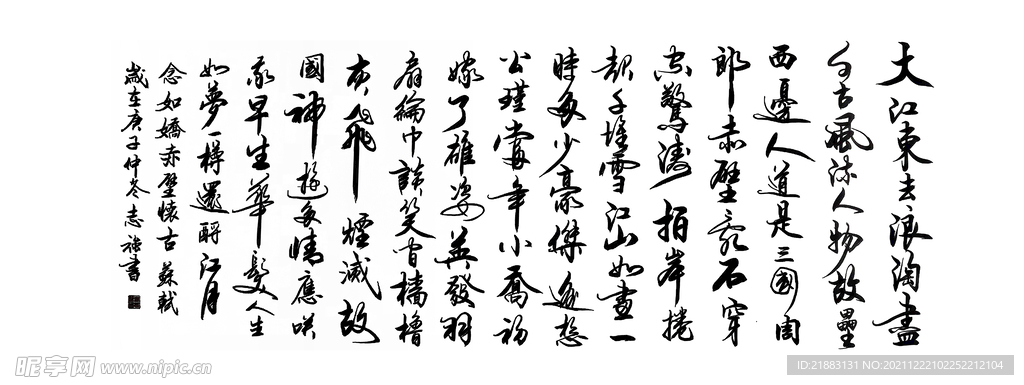 大江東去浪淘盡
千古風流人物故壘
西邊人道是三國周
郎赤壁亂石穿
空驚濤拍岸捲
起千堆雪江山如畫一
時多少豪傑遙想
公瑾當年小喬初
嫁了雄姿英發羽
扇綸巾談笑間檣櫓
灰飛煙滅故
國神遊多情應咲
我早生華髮人生
如夢一樽還酹江月
念如嬌赤壁懷古 蘇軾
歲在庚子仲冬志書
昵享网 www.nipic.cn
ID:21883131 NO:20211222102252212104